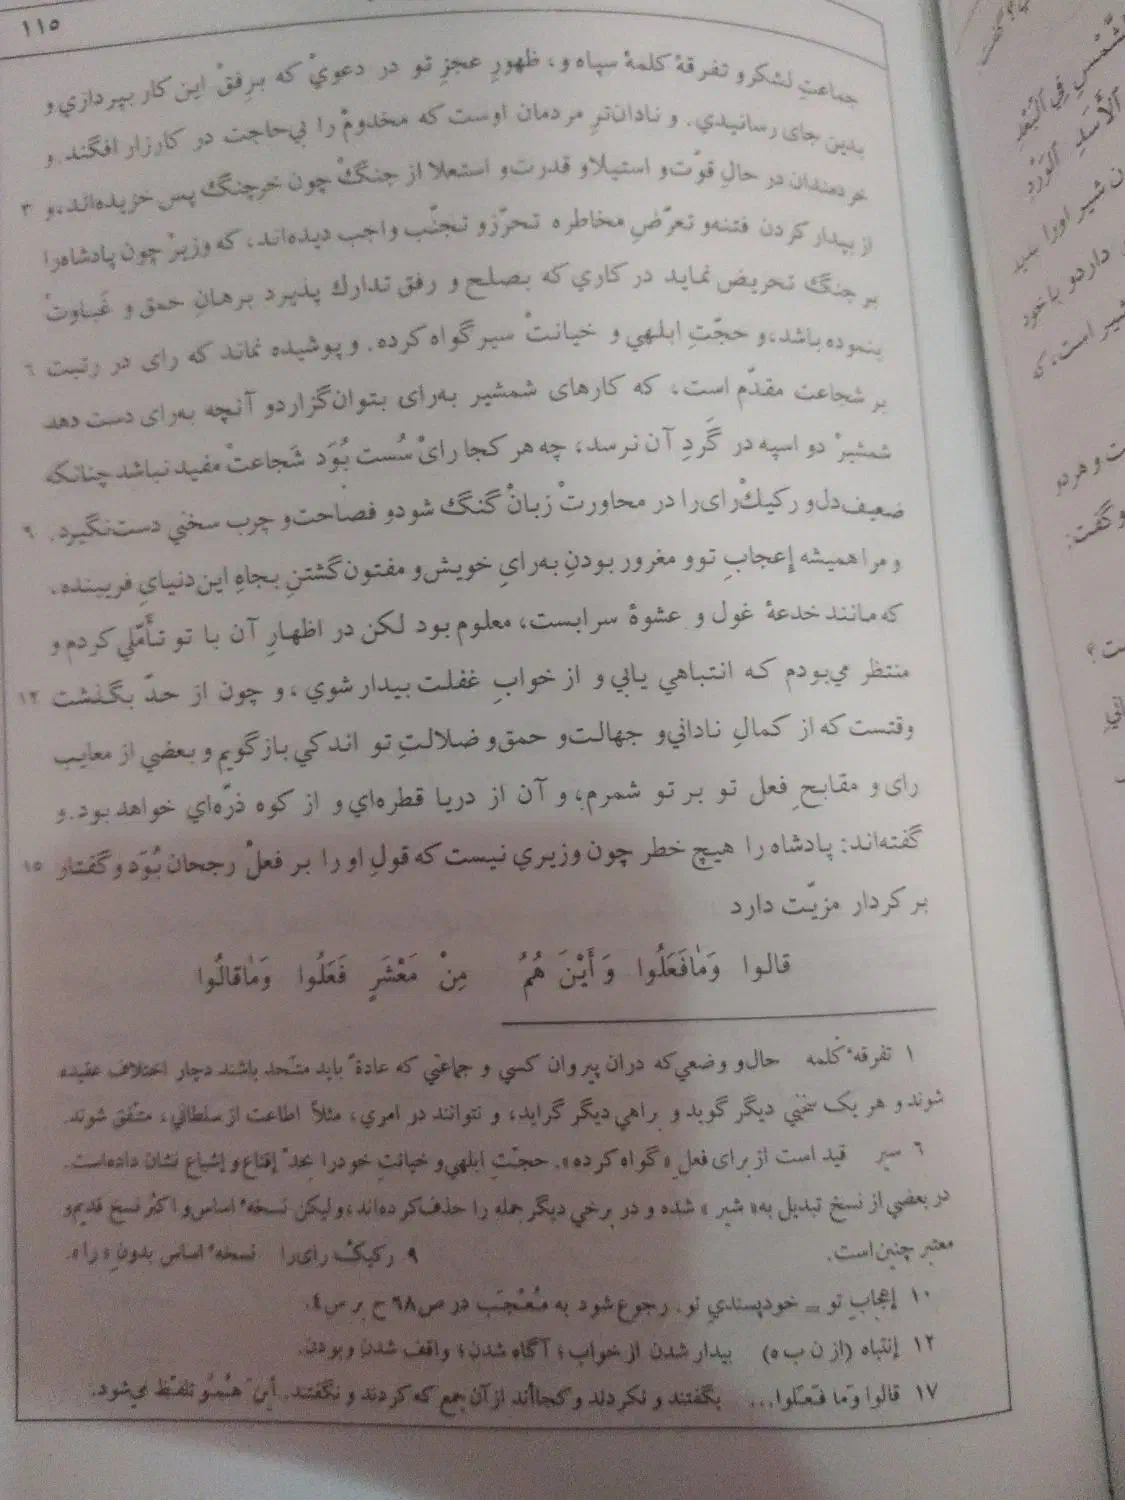 ۱۱۵
جماعتِ لشکر و تفرقهٔ کلمهٔ سپاه و، ظهورِ عجزِ تو در دعویْ که برفقْ این کار بپردازی و
بدین جای رسانیدی. و نادان‌ترِ مردمان اوست که مخدومْ را بی‌حاجت در کارزار افگند. و
خردمندان در حالِ قوّت و استیلا و قدرت و استعلا از جنگْ چون خرچنگ پس خزیده‌اند، و ۳
از بیدار کردن فتنه و تعرّضِ مخاطره تحرّز و تجنّب واجب دیده‌اند، که وزیرْ چون پادشاه را
بر جنگ تحریض نماید در کاری که بصلح و رفق تدارک پذیرد برهانِ حمق و غَباوتْ
بنموده باشد، و حجّتِ ابلهی و خیانتْ سیر گواه کرده. و پوشیده نماند که رای در رتبت ۶
بر شجاعت مقدّم است، که کارهای شمشیر به‌رای بتوان گزارد و آنچه به‌رای دست دهد
شمشیرْ دو اسپه در گَردِ آن نرسد، چه هر کجا رایْ سُست بُوَد شَجاعتْ مفید نباشد چنانکه
ضعیف‌دل و رکیک‌رای‌را در محاورتْ زبانْ گنگ شود و فصاحت و چرب سخنی دست نگیرد. ۹
و مرا همیشه إعجابِ تو و مغرور بودنِ به‌رایِ خویش و مفتون گشتنِ بجاهِ این دنیایِ فریبنده،
که مانند خدعهٔ غول و عشوهٔ سرابست، معلوم بود لکن در اظهارِ آن با تو تأمّلی کردم و
منتظر می‌بودم که انتباهی یابی و از خوابِ غفلت بیدار شوی، و چون از حدّ بگذشت ۱۲
وقتست که از کمالِ نادانی و جهالت و حمق و ضلالتِ تو اندکی بازگویم و بعضی از معایب
رای و مقابحِ فعل تو بر تو شمرم؛ و آن از دریا قطره‌ای و از کوه ذرّه‌ای خواهد بود. و
گفته‌اند: پادشاه را هیچ خطر چون وزیری نیست که قولِ او را بر فعلْ رجحان بُوَد و گفتار ۱۵
بر کردار مزیّت دارد
قالوا وَمٰافَعَلُوا وَ أَیْنَ هُمُ مِنْ مَعْشَرٍ فَعَلُوا وَمٰاقالُوا
۱ تفرقهٔ کلمه حال و وضعی که دران پیروان کسی و جماعتی که عادةً باید متّحد باشند دچار اختلاف عقیده
شوند و هر یک سخنی دیگر گوید و براهی دیگر گراید، و نتوانند در امری، مثلاً اطاعت از سلطانی، متّفق شوند.
۶ سیر قید است از برای فعلِ «گواه کرده». حجّتِ ابلهی و خیانتِ خود را بحدّ إقناع و إشباع نشان داده‌است.
در بعضی از نسخ تبدیل به «شیر» شده و در برخی دیگر جمله را حذف کرده‌اند، ولیکن نسخهٔ اساس و اکثر نسخ قدیم و
معتبر چنین است. ۹ رکیک رای‌را نسخهٔ اساس بدونِ «را».
۱۰ إعجابِ تو = خودپسندیِ تو. رجوع شود به مُعْجَب در ص ۶۸ ح بر س ۴.
۱۲ إنتباه (از ن ب ه) بیدار شدن از خواب؛ آگاه شدن؛ واقف شدن و بودن.
۱۷ قالوا وَما فَعَلوا... بگفتند و نکردند و کجااَند از آن جمع که کردند و نگفتند. أینَ هُمُو تلفّظ می‌شود.